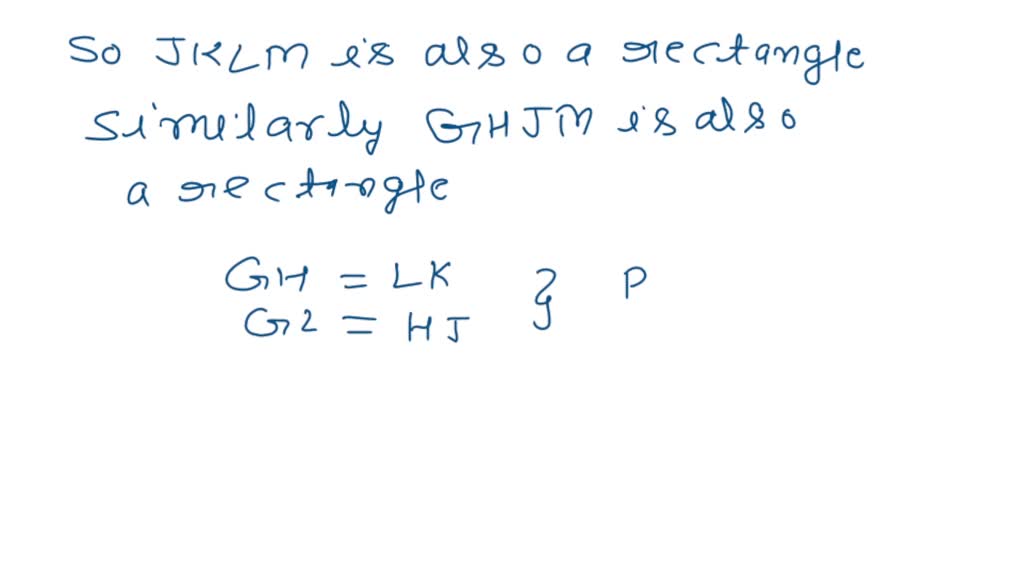 So JKLM is also a rectangle
Similarly GHJM is also
a rectangle
GH = LK } P
G2 = HJ